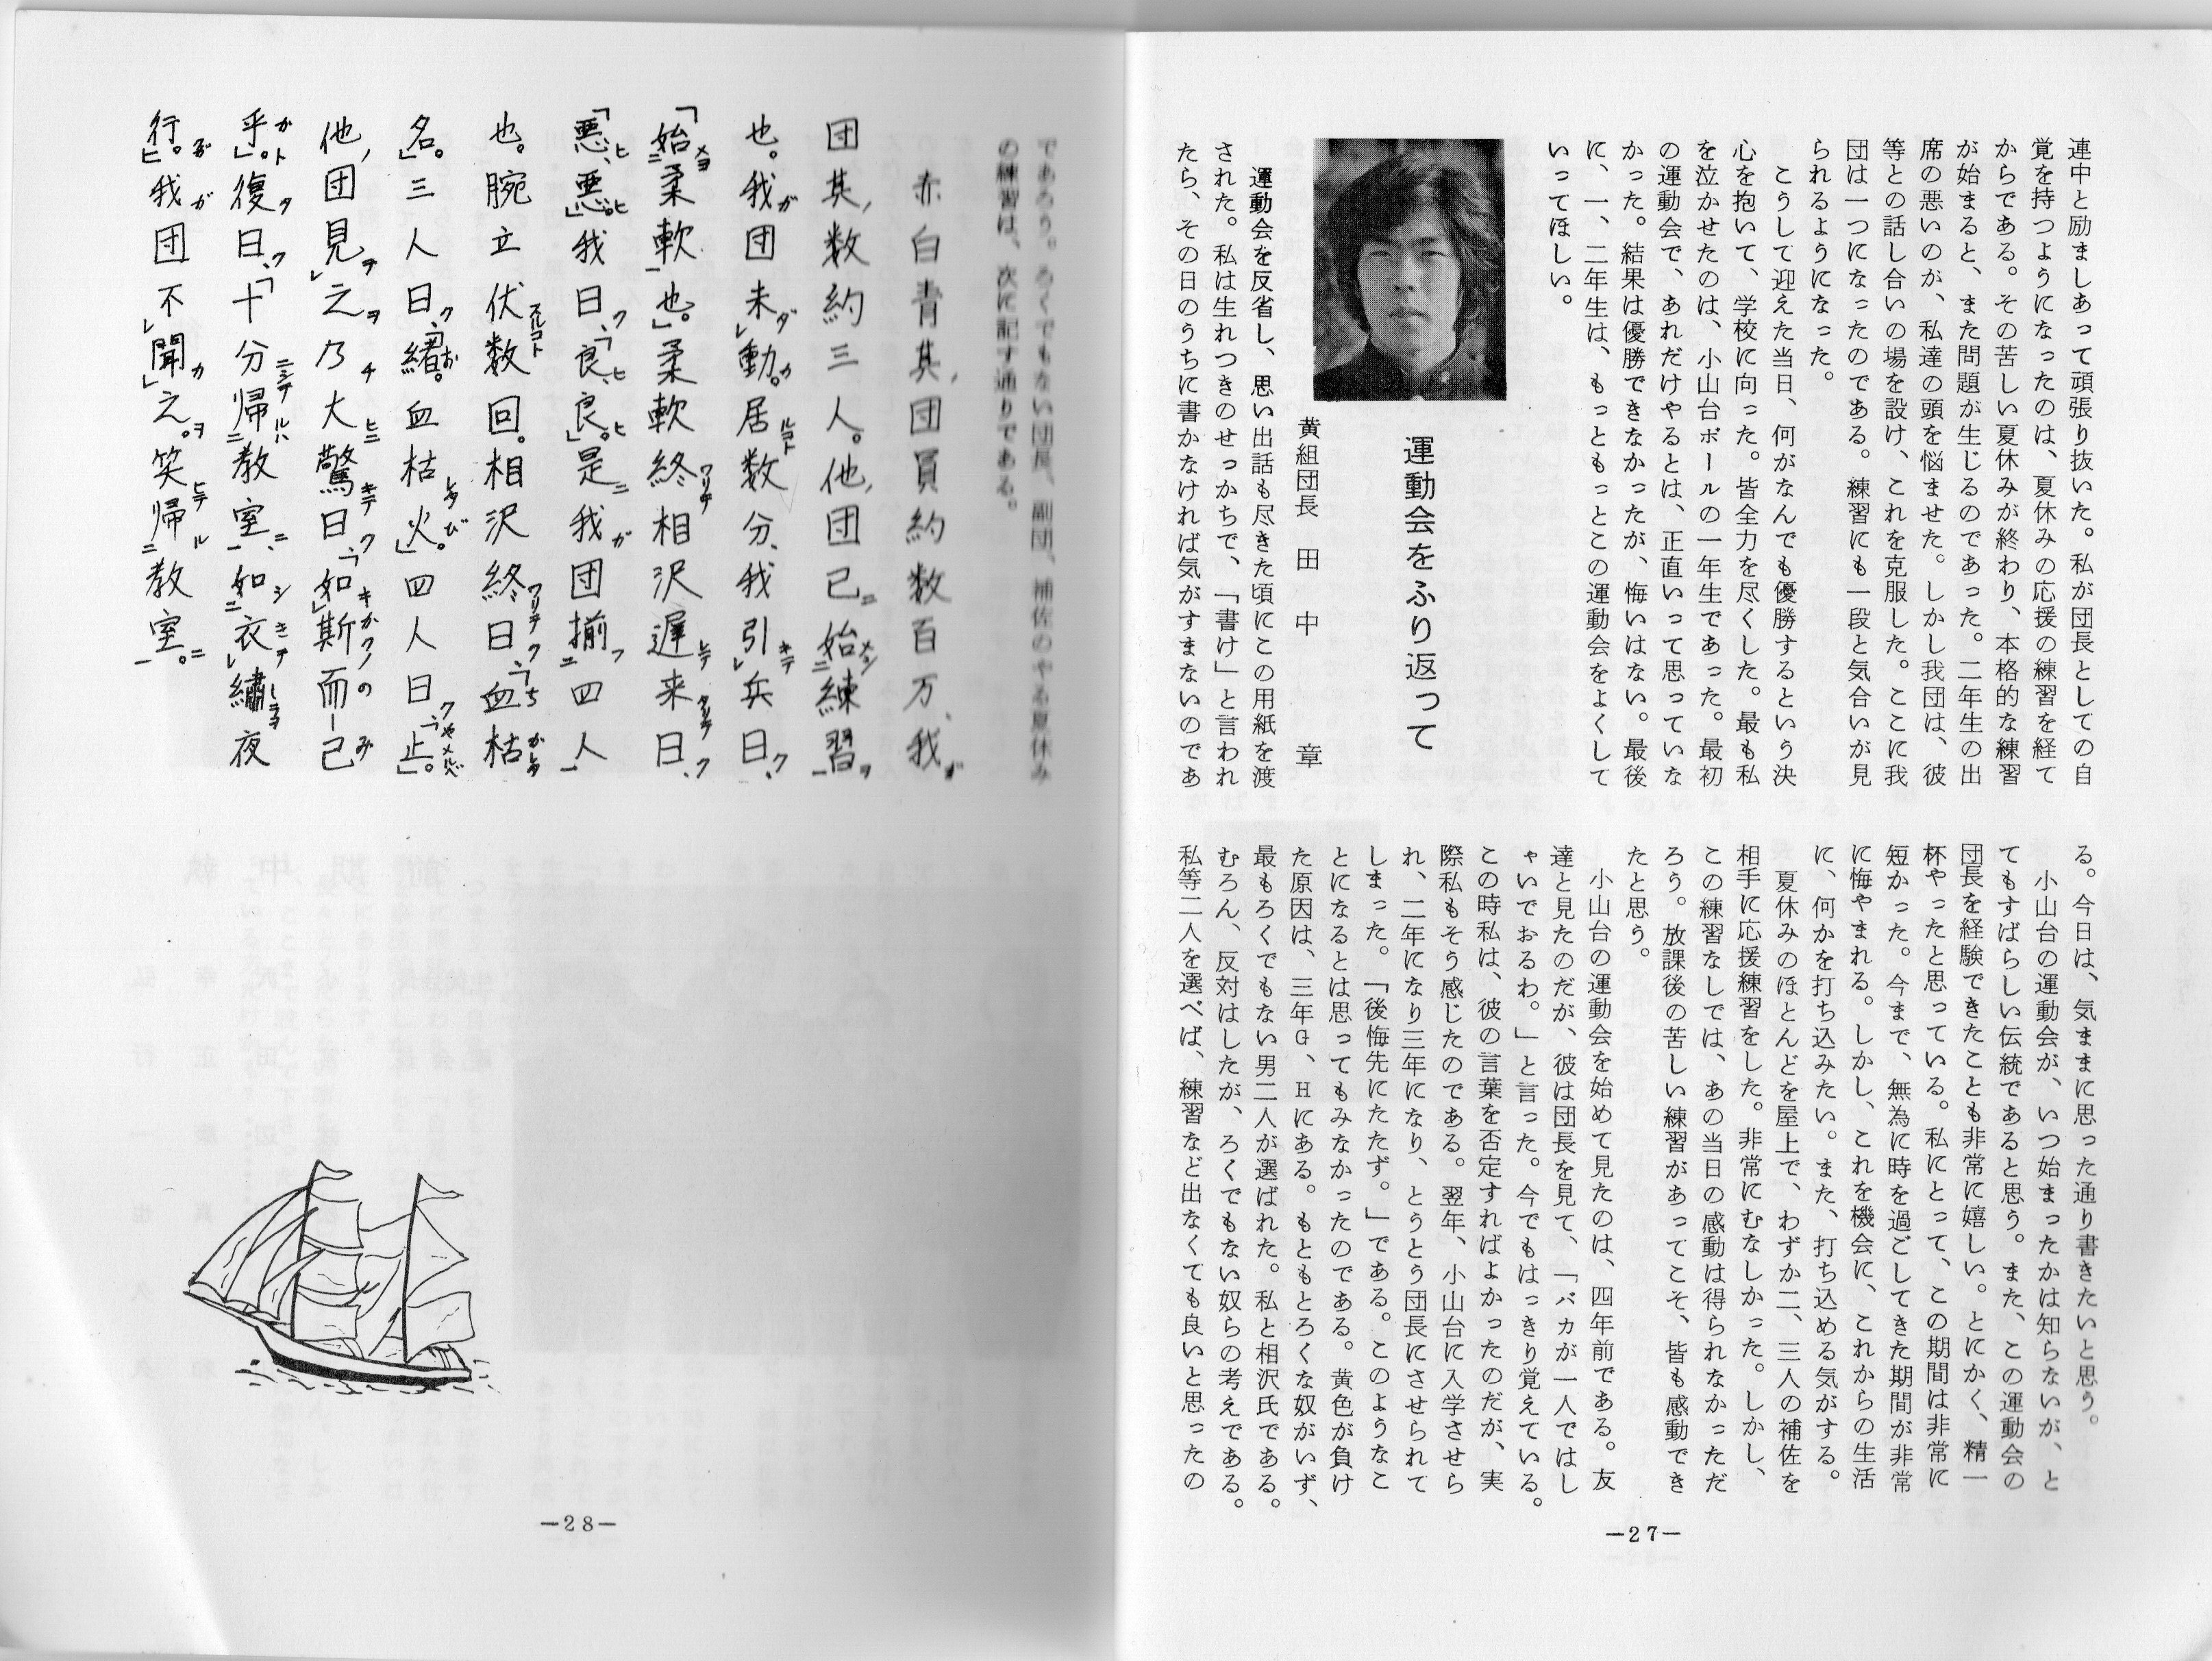 連中と励ましあって頑張り抜いた。私が団長としての自
覚を持つようになったのは、夏休みの応援の練習を経て
からである。その苦しい夏休みが終わり、本格的な練習
が始まると、また問題が生じるのであった。二年生の出
席の悪いのが、私達の頭を悩ませた。しかし我団は、彼
等との話し合いの場を設け、これを克服した。ここに我
団は一つになったのである。練習にも一段と気合いが見
られるようになった。
こうして迎えた当日、何がなんでも優勝するという決
心を抱いて、学校に向った。皆全力を尽くした。最も私
を泣かせたのは、小山台ボールの一年生であった。最初
の運動会で、あれだけやるとは、正直いって思っていな
かった。結果は優勝できなかったが、悔いはない。最後
に、一、二年生は、もっともっとこの運動会をよくして
いってほしい。
運動会をふり返って
黄組団長 田中 章
運動会を反省し、思い出話も尽きた頃にこの用紙を渡
された。私は生れつきのせっかちで、「書け」と言われ
たら、その日のうちに書かなければ気がすまないのであ
る。今日は、気ままに思った通り書きたいと思う。
小山台の運動会が、いつ始まったかは知らないが、と
てもすばらしい伝統であると思う。また、この運動会の
団長を経験できたことも非常に嬉しい。とにかく、精一
杯やったと思っている。私にとって、この期間は非常に
短かった。今まで、無為に時を過ごしてきた期間が非常
に悔やまれる。しかし、これを機会に、これからの生活
に、何かを打ち込みたい。また、打ち込める気がする。
夏休みのほとんどを屋上で、わずか二、三人の補佐を
相手に応援練習をした。非常にむなしかった。しかし、
この練習なしでは、あの当日の感動は得られなかっただ
ろう。放課後の苦しい練習があってこそ、皆も感動でき
たと思う。
小山台の運動会を始めて見たのは、四年前である。友
達と見たのだが、彼は団長を見て、「バカが一人ではし
ゃいでおるわ。」と言った。今でもはっきり覚えている。
この時私は、彼の言葉を否定すればよかったのだが、実
際私もそう感じたのである。翌年、小山台に入学させら
れ、二年になり三年になり、とうとう団長にさせられて
しまった。「後悔先にたたず。」である。このようなこ
とになるとは思ってもみなかったのである。黄色が負け
た原因は、三年G、Hにある。もともとろくな奴がいず、
最もろくでもない男二人が選ばれた。私と相沢氏である。
むろん、反対はしたが、ろくでもない奴らの考えである。
私等二人を選べば、練習など出なくても良いと思ったの
—27—
であろう。ろくでもない団長、副団、補佐のやる夏休み
の練習は、次に記す通りである。
赤白青其団員約数百万、我
団其数約三人。他団已始練習
也。我団未動。居数分、我引兵曰、
「始柔軟也。」柔軟終相沢遅来曰、
「悪、悪。」我曰、「良、良。」是我団揃四人
也。腕立伏数回。相沢終曰、「血枯
名。」三人曰、「緒。血枯火。」四人曰、「止。」
他団見之乃大驚曰、「如斯而已
乎。」復曰、「十分帰教室、如衣繡夜
行。」我団不聞之。笑帰教室。
—28—